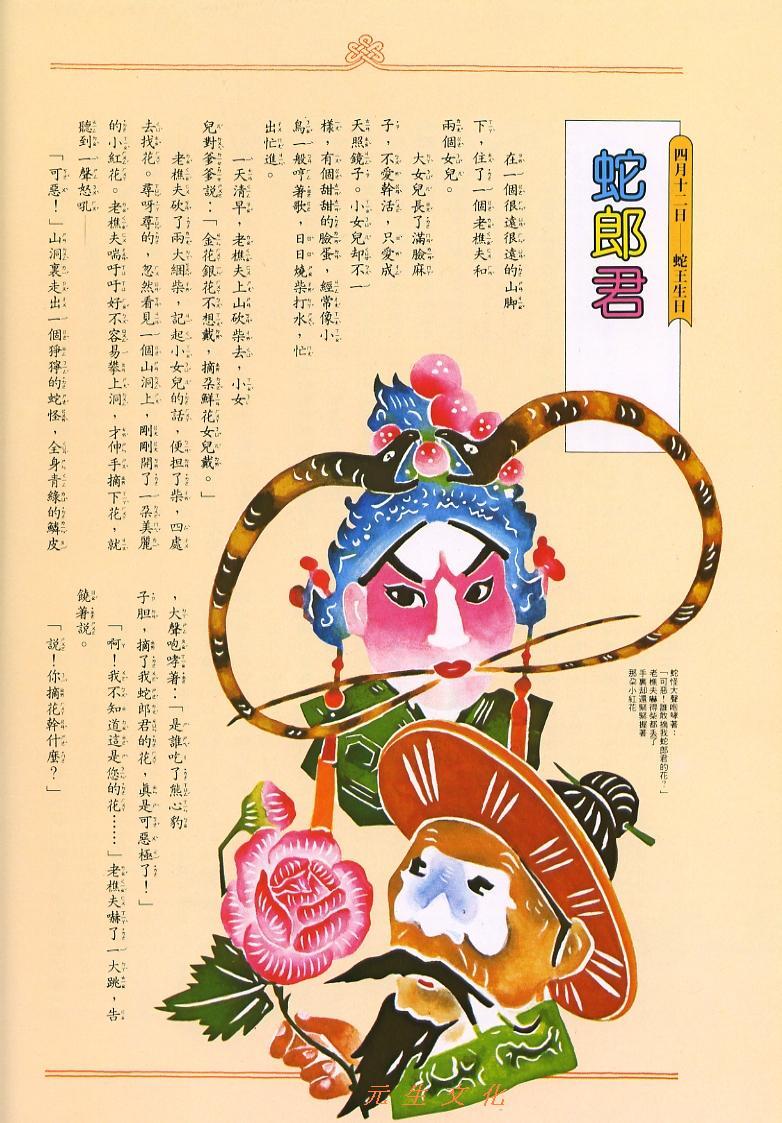 四月十二日──蛇王生日
蛇郎君
在一個很遠很遠的山腳
下，住了一個老樵夫和
兩個女兒。
大女兒長了滿臉麻
子，不愛幹活，只愛成
天照鏡子。小女兒却不一
樣，有個甜甜的臉蛋，經常像小
鳥一般哼著歌，日日燒柴打水，忙
出忙進。
一天清早，老樵夫上山砍柴去，小女
兒對爹爹說：「金花銀花不想戴，摘朵鮮花女兒戴。」
老樵夫砍了兩大綑柴，記起小女兒的話，便担了柴，四處
去找花。尋呀尋的，忽然看見一個山洞上，剛剛開了一朵美麗
的小紅花。老樵夫喘吁吁好不容易攀上洞，才伸手摘下花，就
聽到一聲怒吼──
「可惡！」山洞裏走出一個猙獰的蛇怪，全身青綠的鱗皮
，大聲咆哮著：「是誰吃了熊心豹
子胆，摘了我蛇郎君的花，眞是可惡極了！」
「啊！我不知道這是您的花……」老樵夫嚇了一大跳，告
饒著說。
「說！你摘花幹什麼？」
蛇怪大聲咆哮著：
「可惡！誰敢摘我蛇郎君的花？」
老樵夫嚇得柴都丢了
手裏却還緊緊握著
那朵小紅花
元生文化